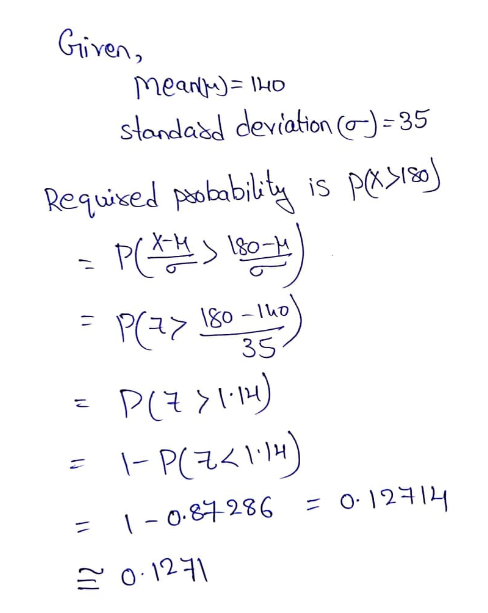 Given,
Mean(μ) = 140
standard deviation (σ) = 35
Required probability is P(X>180)
= P(X-μ/σ > 180-μ/σ)
= P(Z> 180-140/35)
= P(Z>1.14)
= 1-P(Z<1.14)
= 1-0.87286 = 0.12714
≅ 0.1271